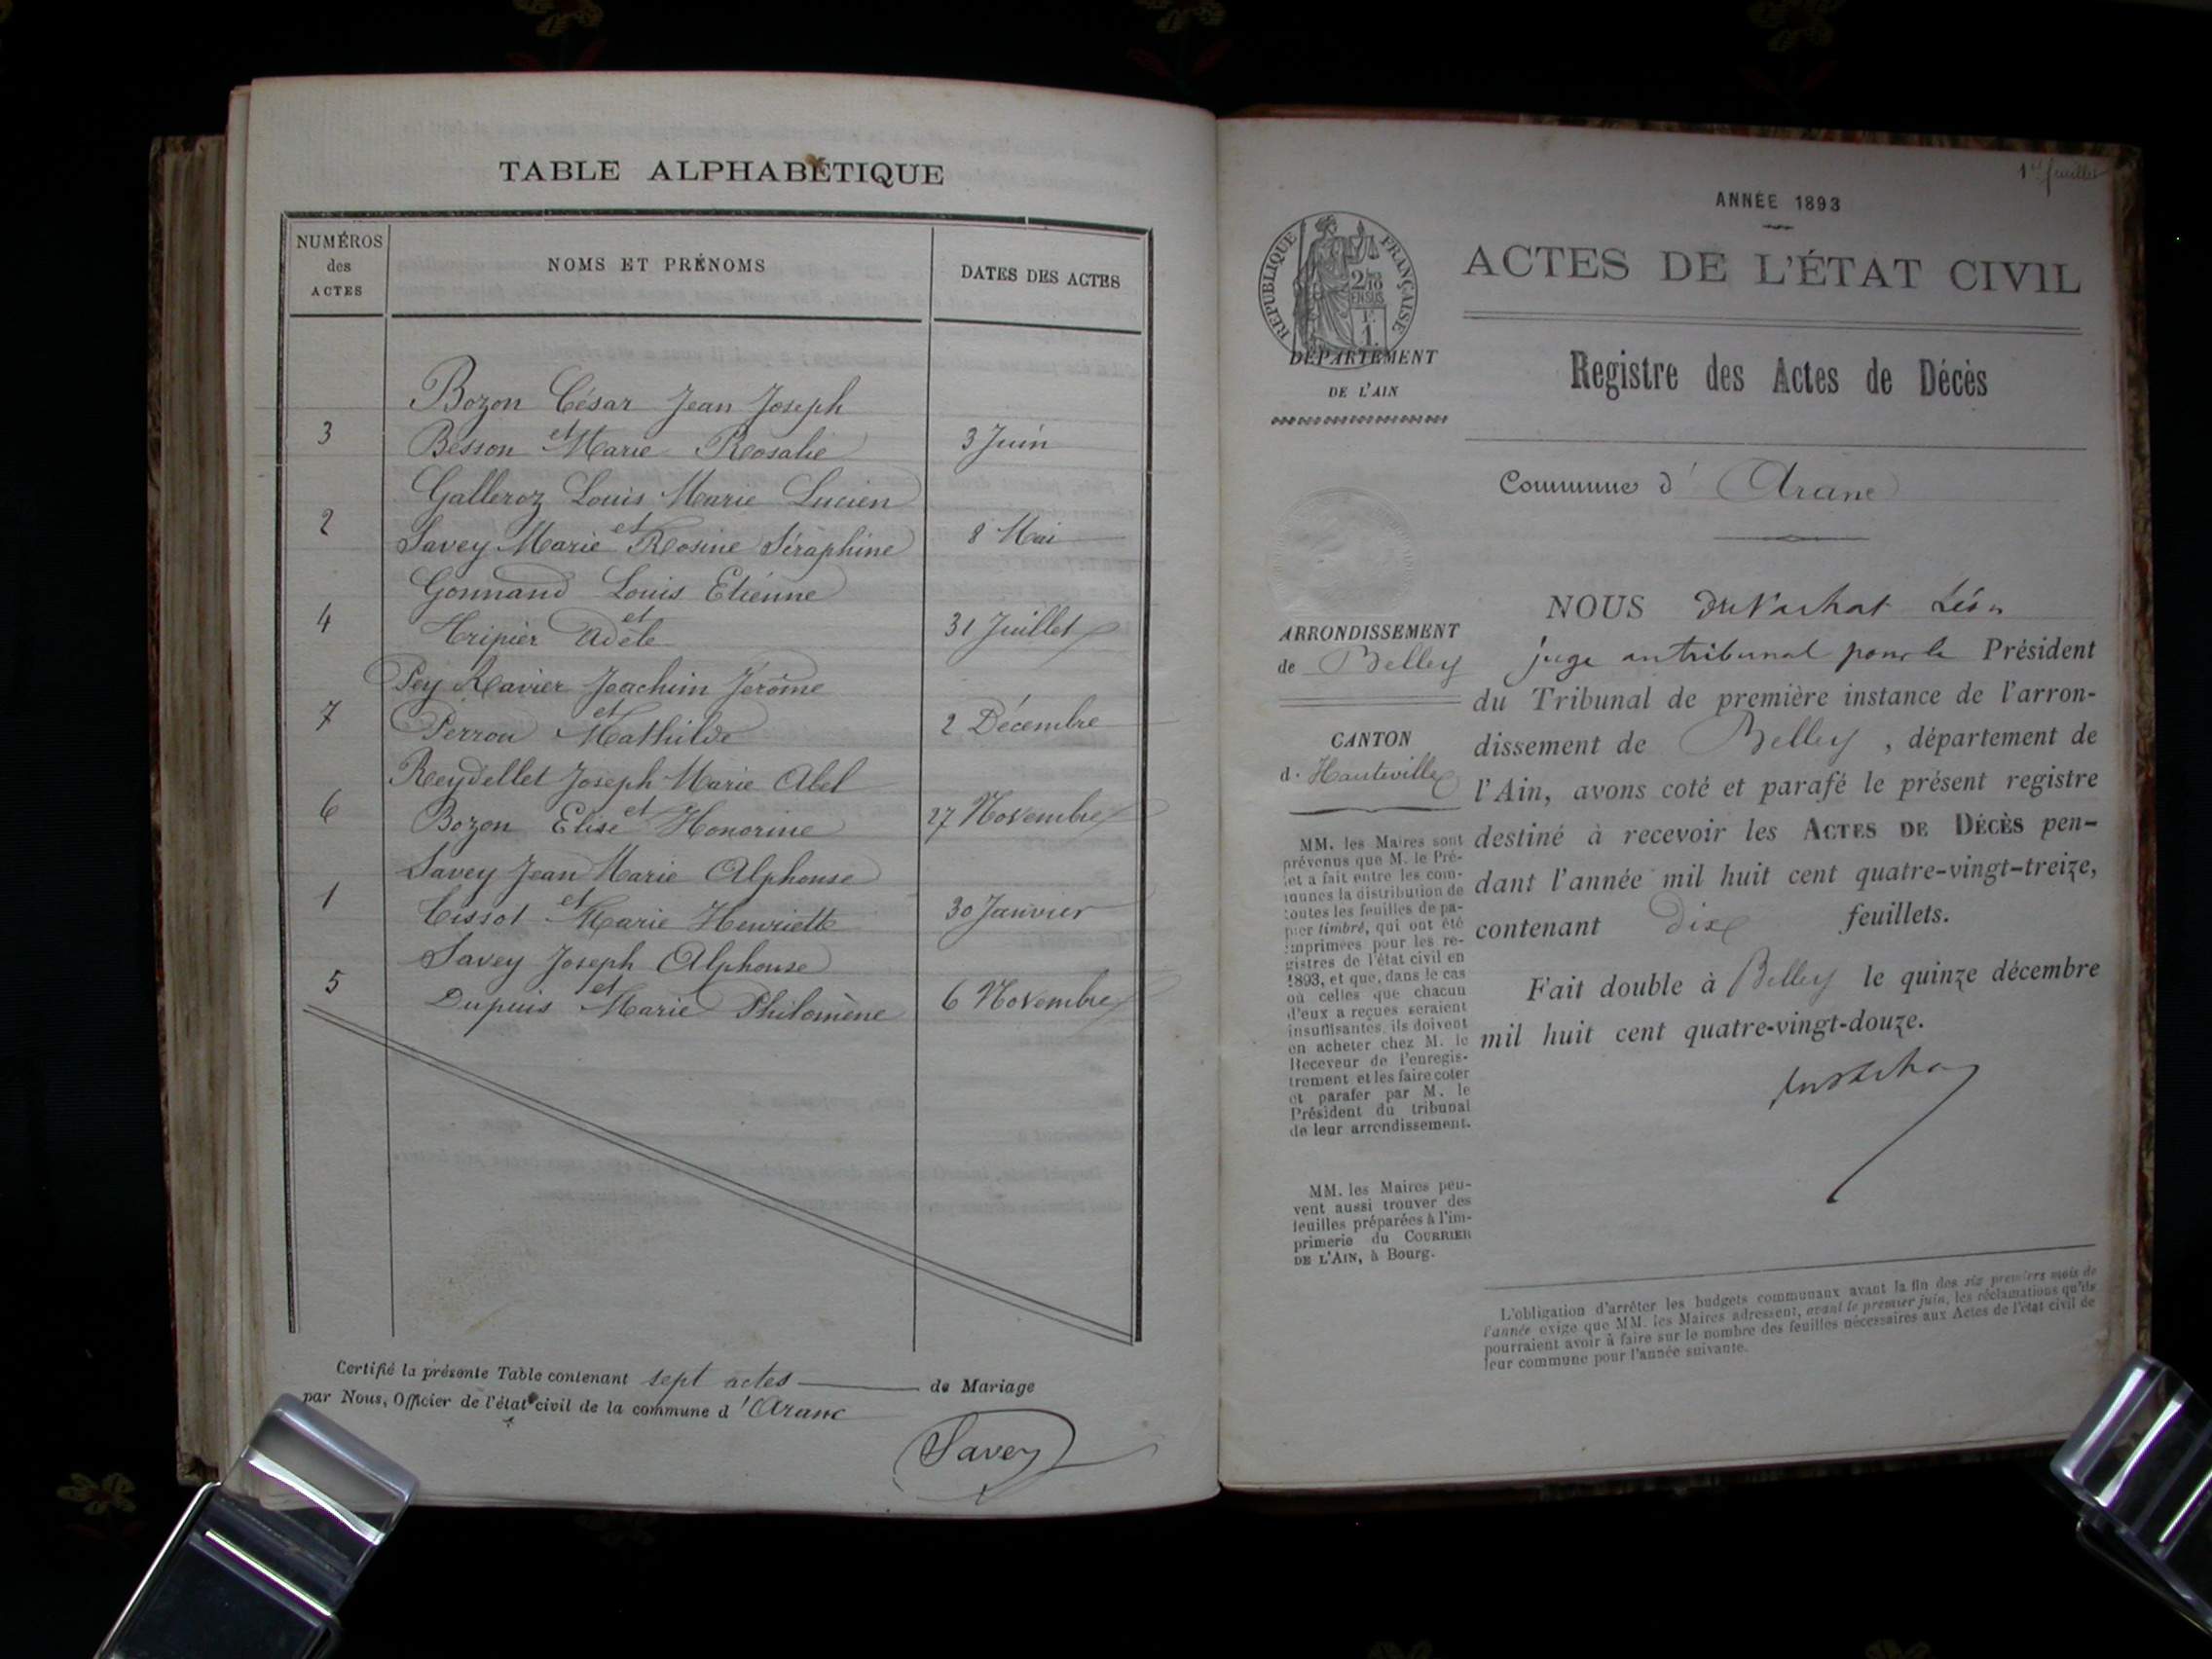 TABLE ALPHABÉTIQUE
NUMÉROS des ACTES
NOMS ET PRÉNOMS
DATES DES ACTES
Bozon César Jean Joseph
et
3 Besson Marie Rosalie 3 Juin
Galleroz Louis Marie Lucien
et
2 Savey Marie Rosine Séraphine 8 Mai
Gonnand Louis Etienne
et
4 Tripier Adèle 31 Juillet
Pey Xavier Joachim Jérôme
et
7 Perrou Mathilde 2 Décembre
Reydellet Joseph Marie Abel
et
6 Bozon Elise Honorine 27 Novembre
Savey Jean Marie Alphonse
et
1 Tissot Marie Henriette 30 Janvier
Savey Joseph Alphonse
et
5 Dupuis Marie Philomène 6 Novembre
Certifié la présente Table contenant sept actes de Mariage
par Nous, Officier de l'état civil de la commune d'Aranc
Savey
1er feuillet
ANNÉE 1893
ACTES DE L'ÉTAT CIVIL
RÉPUBLIQUE FRANÇAISE
2/10
EN SUS
1.
DÉPARTEMENT
DE L'AIN
Registre des Actes de Décès
Commune d' Aranc
ARRONDISSEMENT
de Belley
CANTON
d. Hauteville
MM. les Maires sont
prévenus que M. le Pré-
fet a fait entre les com-
munes la distribution de
toutes les feuilles de pa-
pier timbré, qui ont été
imprimées pour les re-
gistres de l'état civil en
1893, et que, dans le cas
où celles que chacun
d'eux a reçues seraient
insuffisantes, ils doivent
en acheter chez M. le
Receveur de l'enregis-
trement et les faire coter
et parafer par M. le
Président du tribunal
de leur arrondissement.
MM. les Maires peu-
vent aussi trouver des
feuilles préparées à l'im-
primerie du COURRIER
DE L'AIN, à Bourg.
NOUS Duvachat Léon
juge au tribunal pour le Président
du Tribunal de première instance de l'arron-
dissement de Belley, département de
l'Ain, avons coté et parafé le présent registre
destiné à recevoir les ACTES DE DÉCÈS pen-
dant l'année mil huit cent quatre-vingt-treize,
contenant dix feuillets.
Fait double à Belley le quinze décembre
mil huit cent quatre-vingt-douze.
L'obligation d'arrêter les budgets communaux avant la fin des six premiers mois de
l'année exige que MM. les Maires adressent, avant le premier juin, les réclamations qu'ils
pourraient avoir à faire sur le nombre des feuilles nécessaires aux Actes de l'état civil de
leur commune pour l'année suivante.